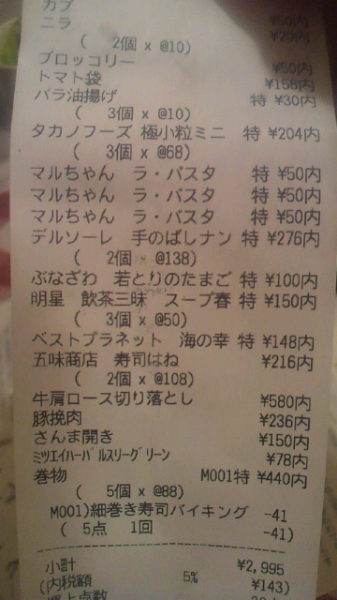 カブ ¥50内
ニラ ¥20内
( 2個 x @10)
ブロッコリー ¥50内
トマト袋 ¥158内
バラ油揚げ 特 ¥30内
( 3個 x @10)
タカノフーズ 極小粒ミニ 特 ¥204内
( 3個 x @68)
マルちゃん ラ・パスタ 特 ¥50内
マルちゃん ラ・パスタ 特 ¥50内
マルちゃん ラ・パスタ 特 ¥50内
デルソーレ 手のばしナン 特 ¥276内
( 2個 x @138)
ぶなざわ 若とりのたまご 特 ¥100内
明星 飲茶三昧 スープ春 特 ¥150内
( 3個 x @50)
ベストプラネット 海の幸 特 ¥148内
五味商店 寿司はね ¥216内
( 2個 x @108)
牛肩ロース切り落とし ¥580内
豚挽肉 ¥236内
さんま開き ¥150内
ミツエイハーバルスリーグリーン ¥78内
巻物 M001特 ¥440内
( 5個 x @88)
M001)細巻き寿司バイキング -41
( 5点 1回 -41)
小計 ¥2,995
(内税額 5% ¥143)
買上点数